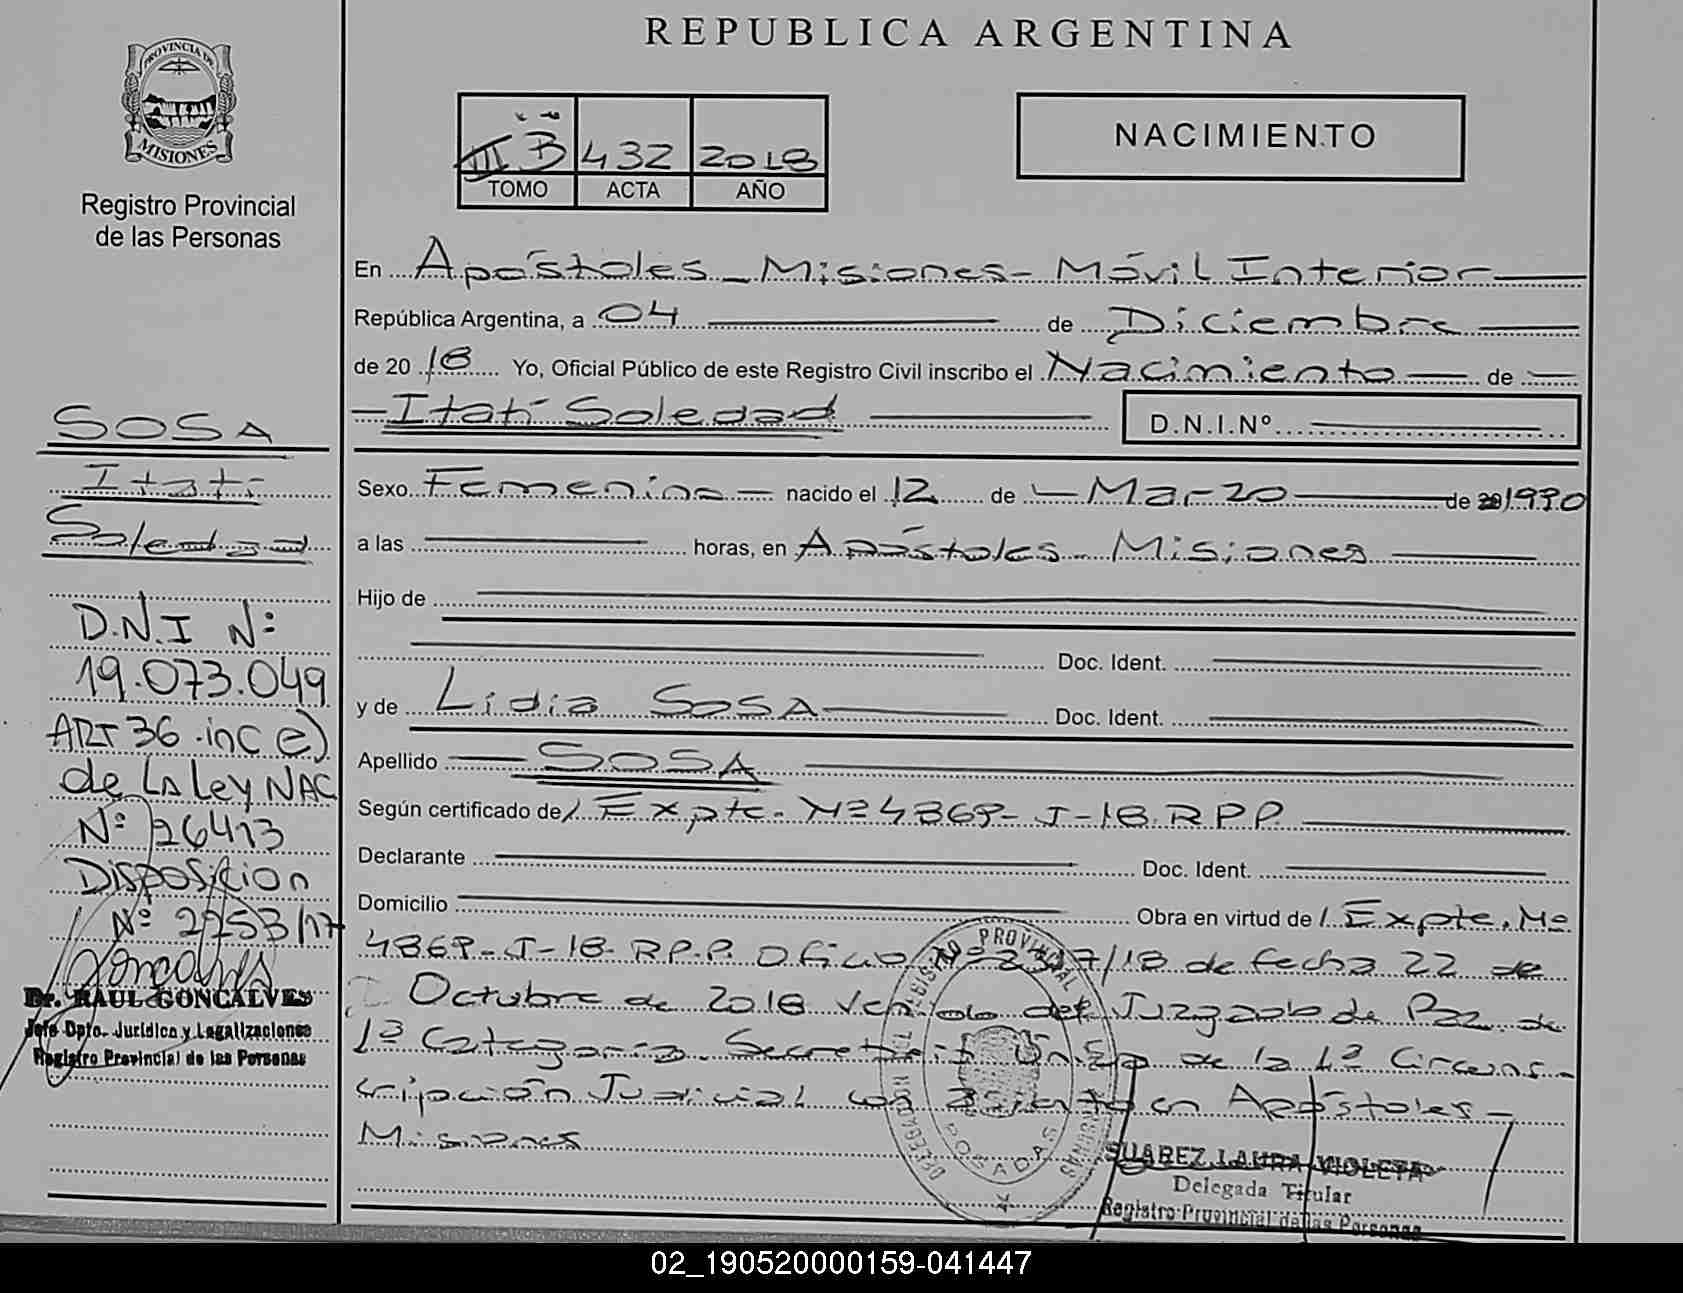 REPUBLICA ARGENTINA
PROVINCIA DE
MISIONES
Registro Provincial
de las Personas
III B 432 2018
TOMO ACTA AÑO
NACIMIENTO
En Apóstoles - Misiones - Móvil Interior
República Argentina, a 04 de Diciembre
de 2018 Yo, Oficial Público de este Registro Civil inscribo el Nacimiento de
Itatí Soledad
D.N.I.Nº
Sexo Femenino nacido el 12 de Marzo de 1990
a las horas, en Apóstoles - Misiones
Hijo de
Doc. Ident.
y de Lidia SOSA Doc. Ident.
Apellido SOSA
Según certificado de Expte. Nº 4869-J-18 RPP.
Declarante Doc. Ident.
Domicilio Obra en virtud de Expte. Nº
4869-J-18-R.P.P. Oficio Nº /18 de fecha 22 de
Octubre de 2018 Venido del Juzgado de Paz de
1ª Categoría Secretaría Única de la 4ª Circuns-
cripción Judicial con asiento en Apóstoles -
Misiones
SOSA
Itatí
Soledad
D.N.I Nº
19.073.049
ART 36 inc e)
de LA Ley NAC
Nº 26413
Disposicion
Nº 2253/17
Dr. RAUL GONCALVES
Jefe Dpto. Jurídico y Legalizaciones
Registro Provincial de las Personas
DELEGACION DEL REGISTRO PROVINCIAL PERSONAS
POSADAS
SUAREZ LAURA VIOLETA
Delegada Titular
Registro Provincial de las Personas
02_190520000159-041447